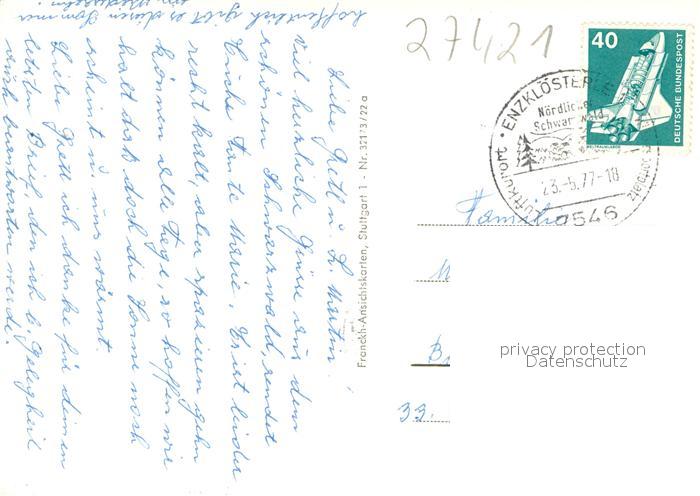 hoffentlich gibt es diesen Sommer
ein Wiedersehen!
Liebe Gretl u. L. Martin!
Viel herzliche Grüsse aus dem
schönen Schwarzwald, sendet
Euch Tante Marie. Es ist leider
recht kalt, aber spazieren gehn
können alle Tage, so hoffen wir
halt daß doch die Sonne noch
scheint u. uns wärmt
Liebe Gretl ich danke für deinen
letzten Brief, den ich b. Gelegenheit
auch beantworten werde.
Franckh-Ansichtskarten, Stuttgart 1 - Nr. 321/3/22a
27421
40
DEUTSCHE BUNDESPOST
WELTRAUMLABOR
ENZKLÖSTERLE
Nördlicher
Schwarzwald
23.-5.77-10
Luftkurort
7546
Familie
M
B
33.
privacy protection
Datenschutz